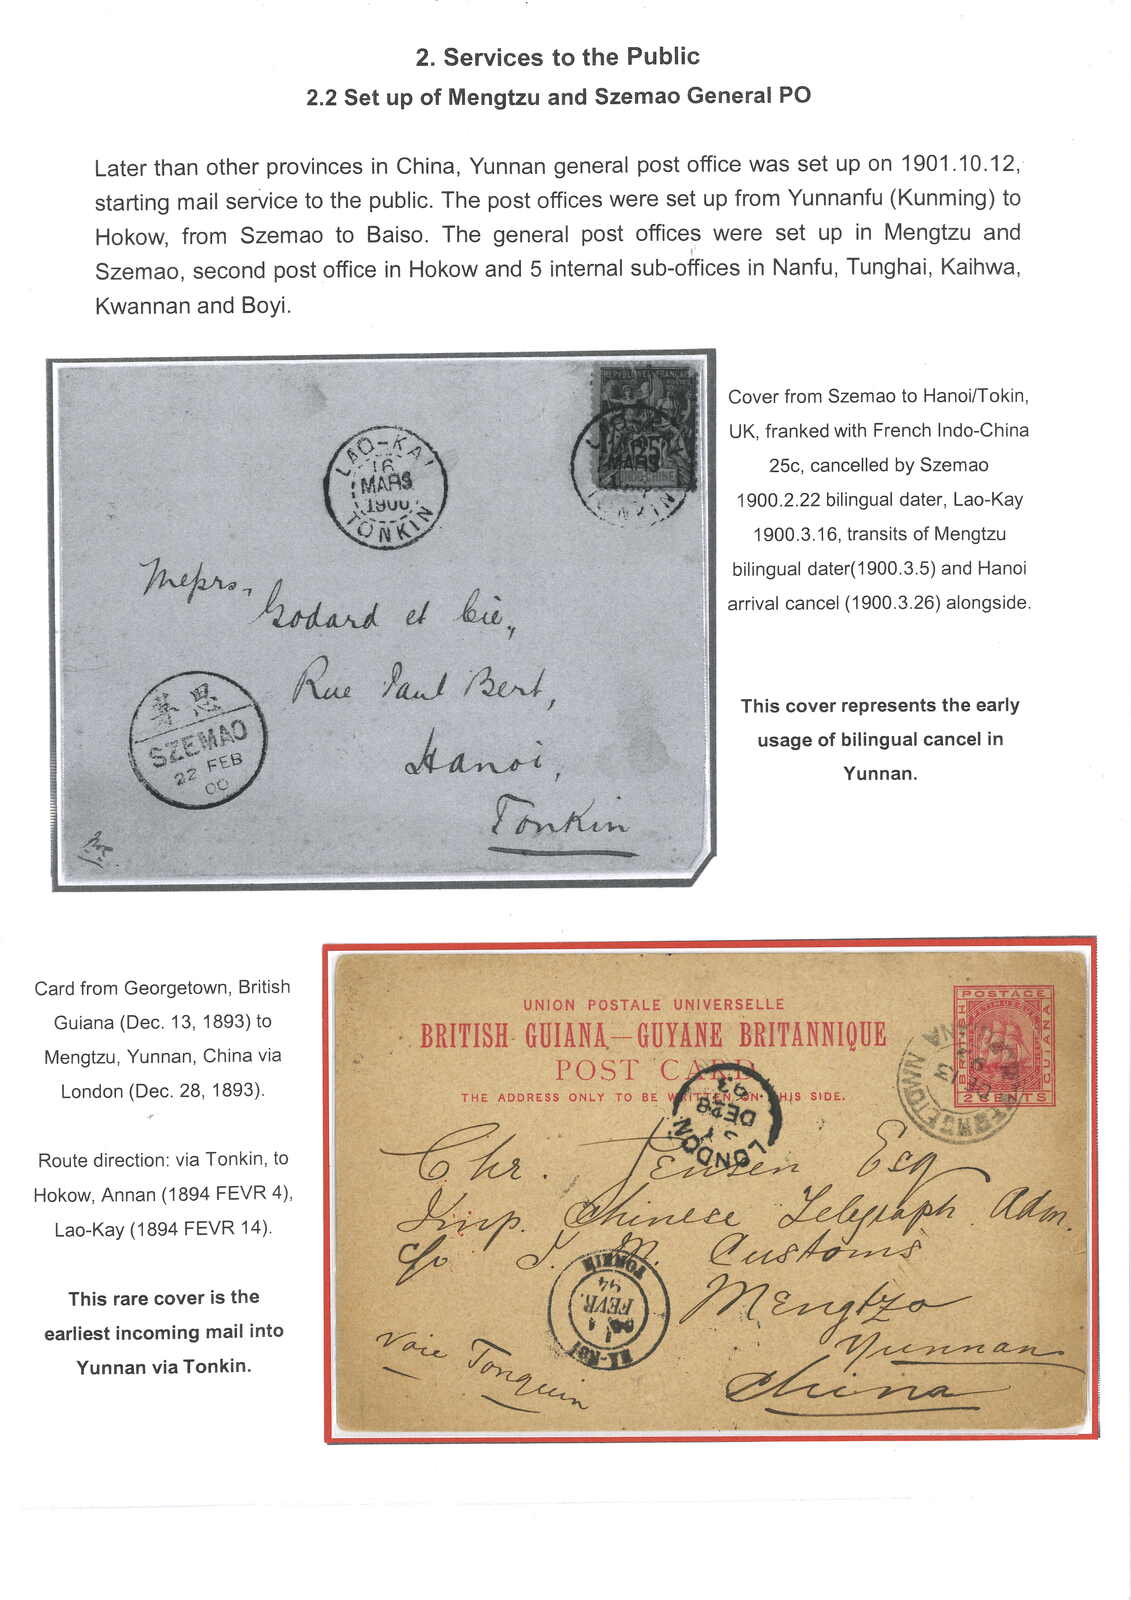 2. Services to the Public
2.2 Set up of Mengtzu and Szemao General PO
Later than other provinces in China, Yunnan general post office was set up on 1901.10.12,
starting mail service to the public. The post offices were set up from Yunnanfu (Kunming) to
Hokow, from Szemao to Baiso. The general post offices were set up in Mengtzu and
Szemao, second post office in Hokow and 5 internal sub-offices in Nanfu, Tunghai, Kaihwa,
Kwannan and Boyi.
LAO-KAI
16
MARS
1900
TONKIN
Godard et Cie,
Rue Paul Bert,
Hanoi,
Tonkin
思茅
SZEMAO
22 FEB
00
Cover from Szemao to Hanoi/Tokin,
UK, franked with French Indo-China
25c, cancelled by Szemao
1900.2.22 bilingual dater, Lao-Kay
1900.3.16, transits of Mengtzu
bilingual dater(1900.3.5) and Hanoi
arrival cancel (1900.3.26) alongside.
This cover represents the early
usage of bilingual cancel in
Yunnan.
Card from Georgetown, British
Guiana (Dec. 13, 1893) to
Mengtzu, Yunnan, China via
London (Dec. 28, 1893).
Route direction: via Tonkin, to
Hokow, Annan (1894 FEVR 4),
Lao-Kay (1894 FEVR 14).
This rare cover is the
earliest incoming mail into
Yunnan via Tonkin.
UNION POSTALE UNIVERSELLE
BRITISH GUIANA—GUYANE BRITANNIQUE
POST CARD
THE ADDRESS ONLY TO BE WRITTEN ON THIS SIDE.
POSTAGE
BRITISH
GUIANA
2 CENTS
LONDON
DE 28
93
Chr. Jensen Esq
Imp. Chinese Telegraph Adm.
c/o I. M. Customs
Mengtzo
Yunnan
China
Voie Tonquin
TONKIN
94
FEVR.